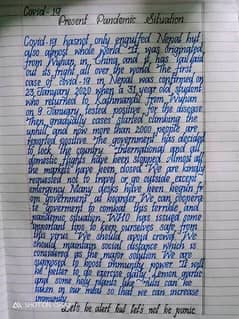 Covid-19
Present Pandemic Situation
Covid-19 hasnot only engulfed Nepal but
also almost whole world. It was originated
from Wuhan, in China, and it has laid
out its fright all over the world. The first
case of covid-19 in Nepal was confirmed on
23 January 2020 when a 31 year old student
who returned to Kathmandu from Wuhan
on 9 January, tested positive for the disease
Then gradually cases started climbing the
uphill and now more than 2000 people are
reported positive. The government has decided
to lock the country. International and all
domestic flights have been stopped. Almost all
the markets have been closed. We are kindly
requested not to go outside except
emergency. Many desks have been begun from
government at boarder. We can cooperate
government to combat this terrible and
pandemic situation. WHO has issued some
important tips to keep ourselves safe from
this virus. We should avoid crowd. We
should maintain social distance which is
considered as the major solution. We are
supposed to boost immunity power. It will
be better to do exercise daily. Lemon, garlic
and some holy plants like can be
taken in our meal so that we can increase
immunity.
Let's be alert but let's not be panic.
SHOT ON